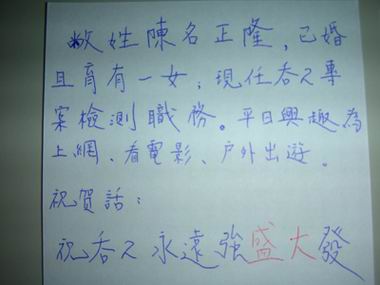 敝姓陳名正隆，已婚
且育有一女，現任吞ㄡ專
案檢測職務。平日興趣為
上網、看電影、戶外出遊。
祝賀話：
祝吞ㄡ永遠強盛大發